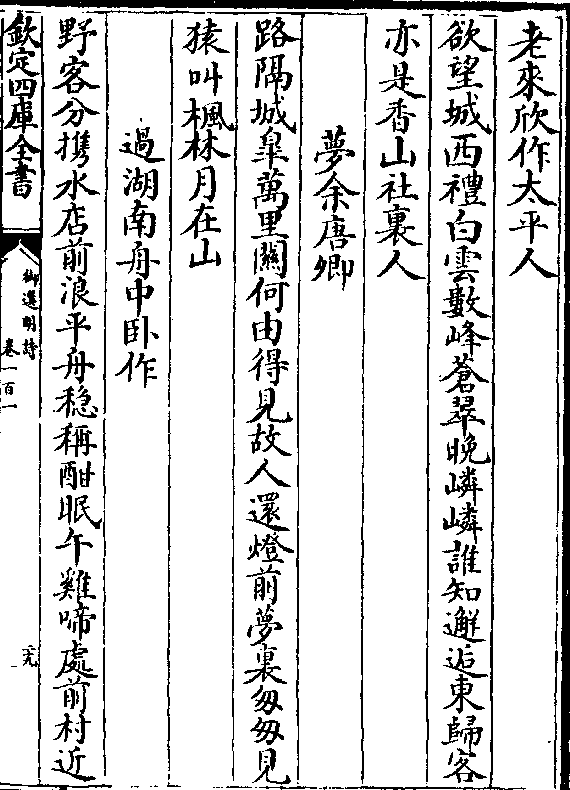 老來欣作太平人
欲望城西禮白雲數峰蒼翠晚嶙嶙誰知邂逅東歸客
亦是香山社裏人
夢余唐卿
路隔城皐萬里關何由得見故人還燈前夢裏匆匆見
猿叫楓林月在山
過湖南舟中卧作
野客分攜水店前浪平舟穏稱酣眠午雞啼處前村近
欽定四庫全書
御選明詩
卷一百一